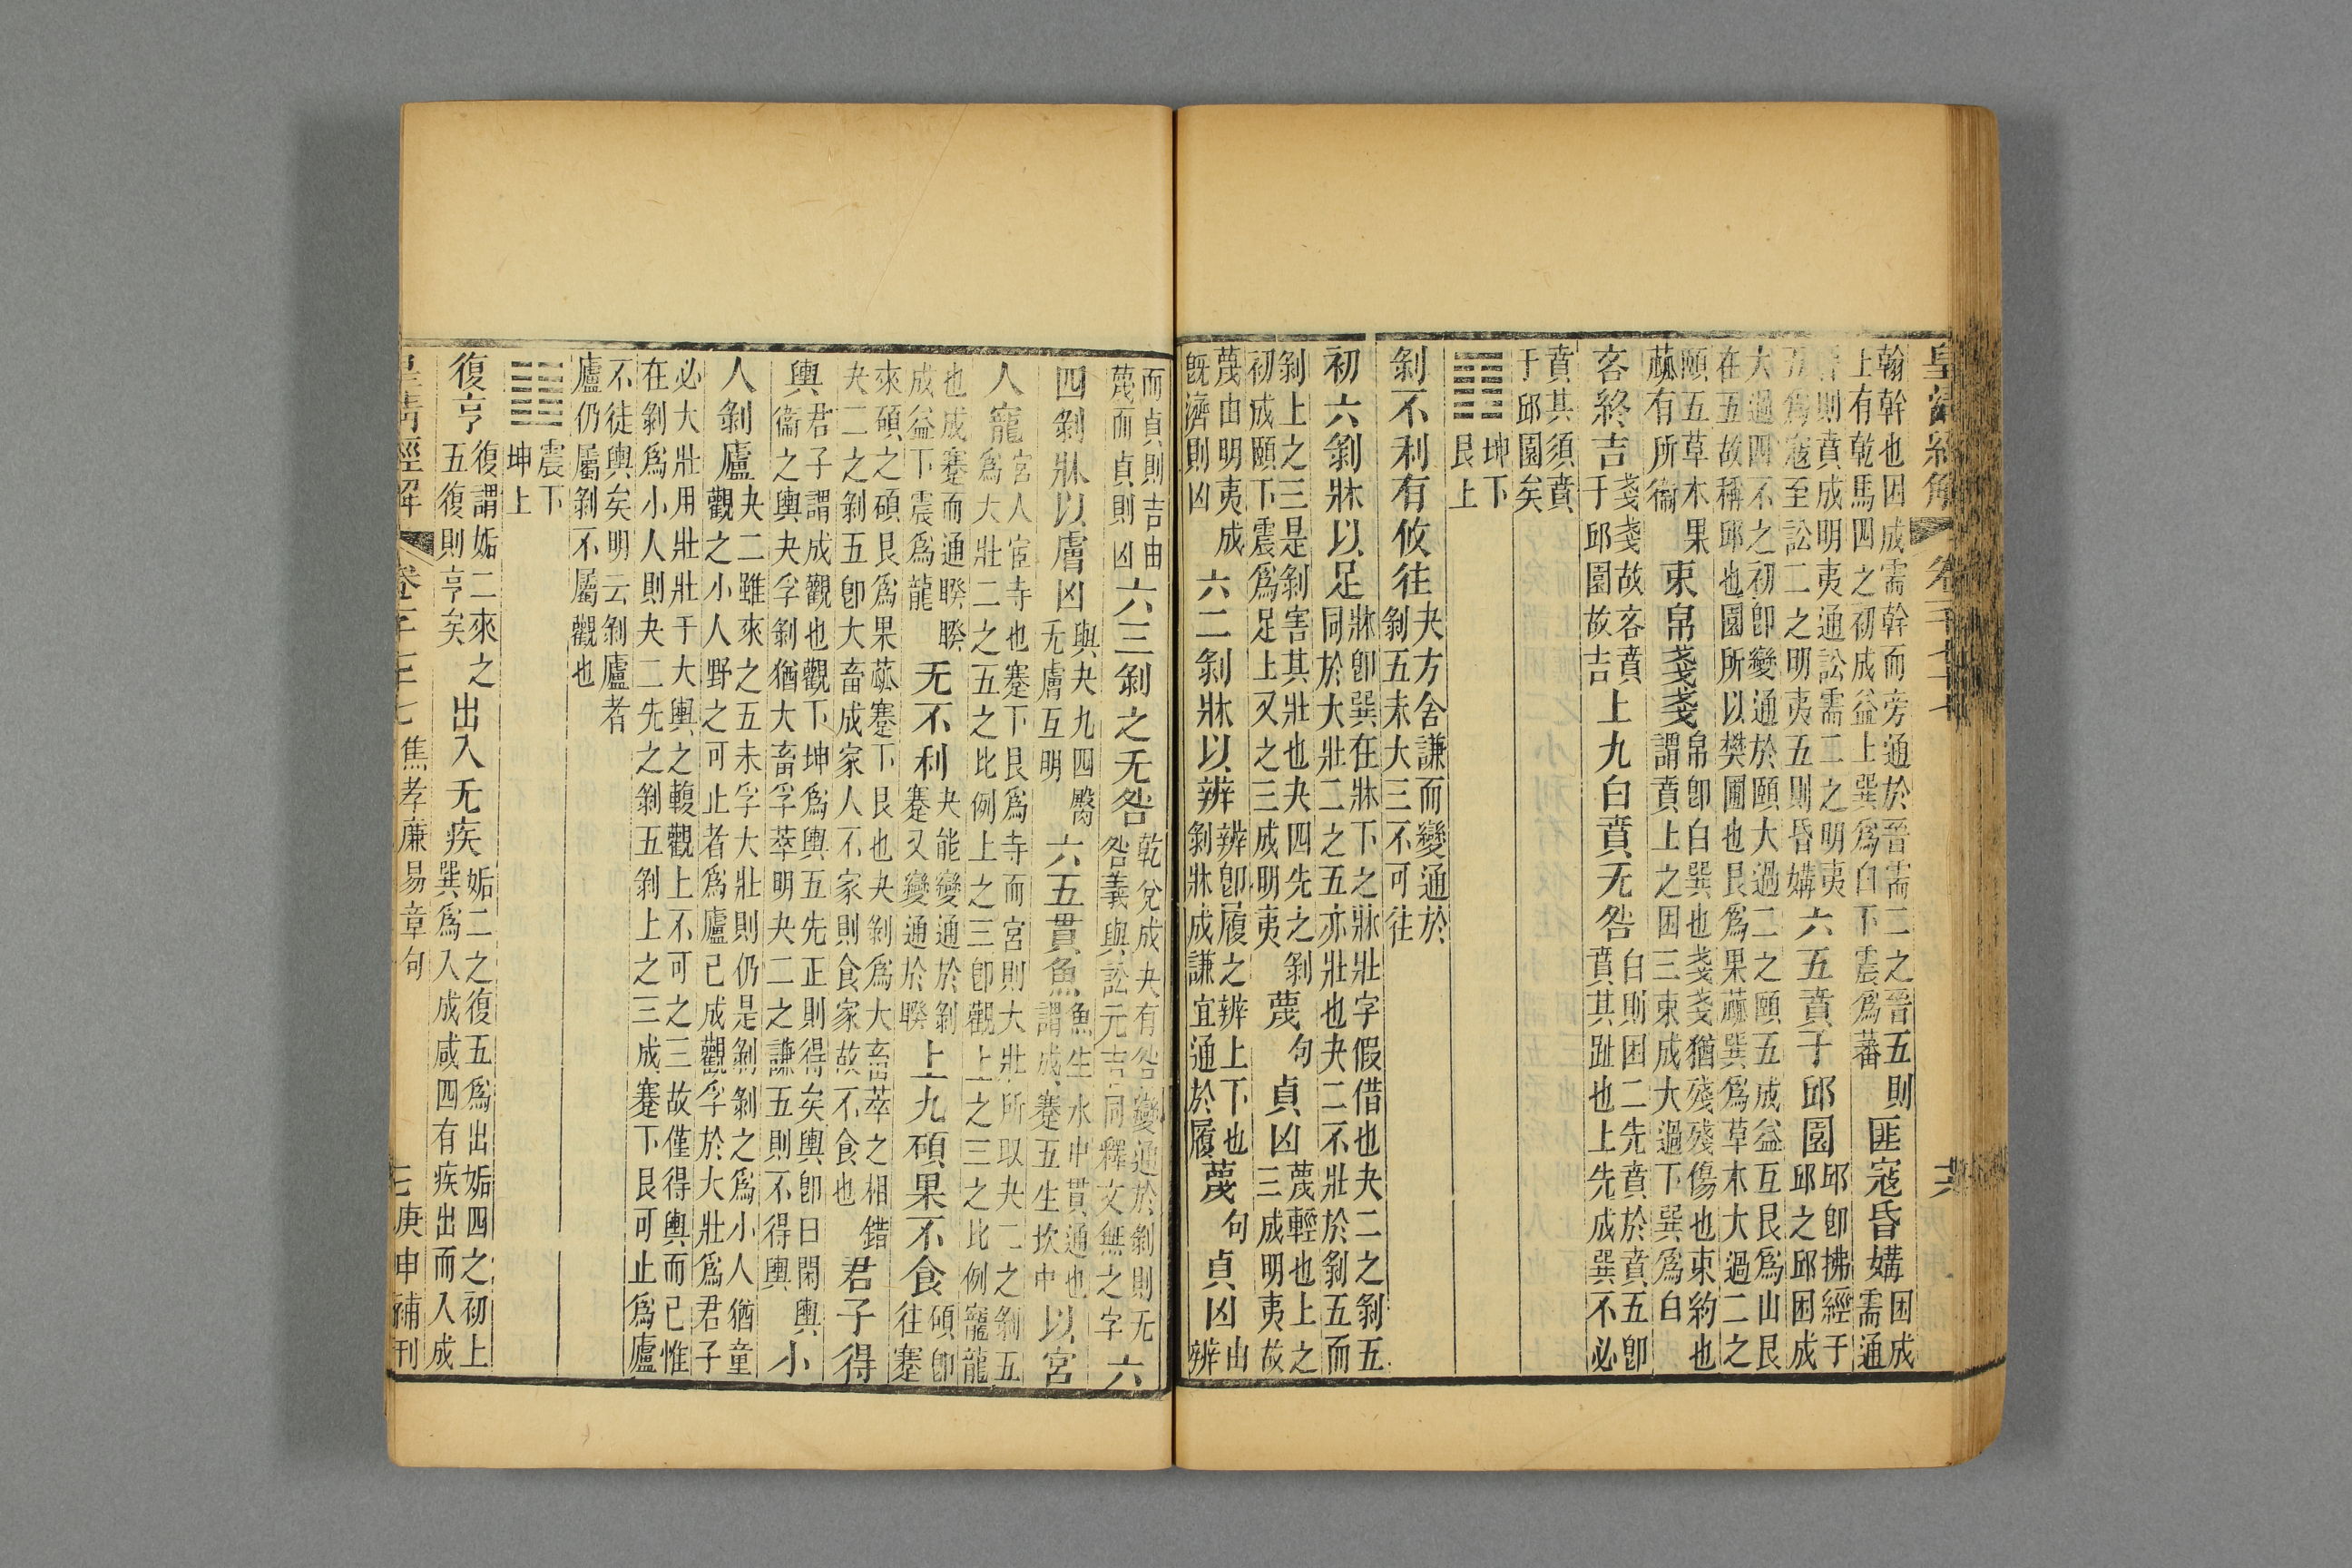 皇清經解
翰幹也因成需幹而旁通於晉需二之晉五則
上有乾馬四之初成益上巽爲白下震爲蕃
匪寇昏媾
困成
需通
則賁成明夷通訟需二之明夷
五爲寇至訟二之明夷五則昏媾
六五賁于邱園
邱卽拂經于
邱之邱困成
大過四不之初卽變通於頤大過二之頤五成益互艮爲山艮
在五故稱邱也園所以樊圃也艮爲果蓏巽爲草木大過二之
頤五草木果
蓏有所衞
束帛戔戔
帛卽白巽也戔戔猶殘殘傷也束約也
謂賁上之困三束成大過下巽爲白
吝終吉
戔戔故吝賁
于邱園故吉
上九白賁无咎
白則困二先賁於賁五卽
賁其趾也上先成巽不必
賁其須賁
于邱園矣
䷖
坤下
艮上
剝不利有攸往
夬方舍謙而變通於
剝五未大三不可往
初六剝牀以足
牀卽巽在牀下之牀壯字假借也夬二之剝五
同於大壯二之五亦壯也夬二不壯於剝五而
剝上之三是剝害其壯也夬四先之剝
初成頤下震爲足上又之三成明夷
蔑
句
貞凶
蔑輕也上之
三成明夷故
蔑由明夷成
旣濟則凶
六二剝牀以辨
辨卽履之辨上下也
剝牀成謙宜通於履
蔑
句
貞凶
由
辨
而貞則吉由
蔑而貞則凶
六三剝之无咎
乾兌成夬有咎變通於剝則无
咎義與訟元吉同釋文無之字
六
四剝牀以膚凶
與夬九四臀
无膚互明
六五貫魚
魚生水中貫通也
謂成蹇五生坎中
以宮
人寵
宮人宦寺也蹇下艮爲寺而宮則大壯所以夬二之剝五
爲大壯二之五之比例上之三卽觀上之三之比例寵龍
也成蹇而通睽睽
成益下震爲龍
无不利
夬能變通於剝
蹇又變通於睽
上九碩果不食
碩卽
往蹇
來碩之碩艮爲果蓏蹇下艮也夬剝爲大畜萃之相錯
夬二之剝五卽大畜成家人不家則食家故不食也
君子得
輿
君子謂成觀也觀下坤爲輿五先正則得矣輿卽日閑輿
衞之輿夬孚剝猶大畜孚萃明夬二之謙五則不得輿
小
人剝廬
夬二雖來之五未孚大壯則仍是剝剝之爲小人猶童
觀之小人野之可止者爲廬已成觀孚於大壯爲君子
必大壯用壯壯于大輿之輹觀上不可之三故僅得輿而已惟
在剝爲小人則夬二先之剝五剝上之三成蹇下艮可止爲廬
不徒輿矣明云剝廬者
廬仍屬剝不屬觀也
䷗
震下
坤上
復亨
復謂姤二來之
五復則亨矣
出入无疾
姤二之復五爲出姤四之初上
巽爲入成咸四有疾出而入成
皇清經解
焦孝廉易章句
庚申補刊